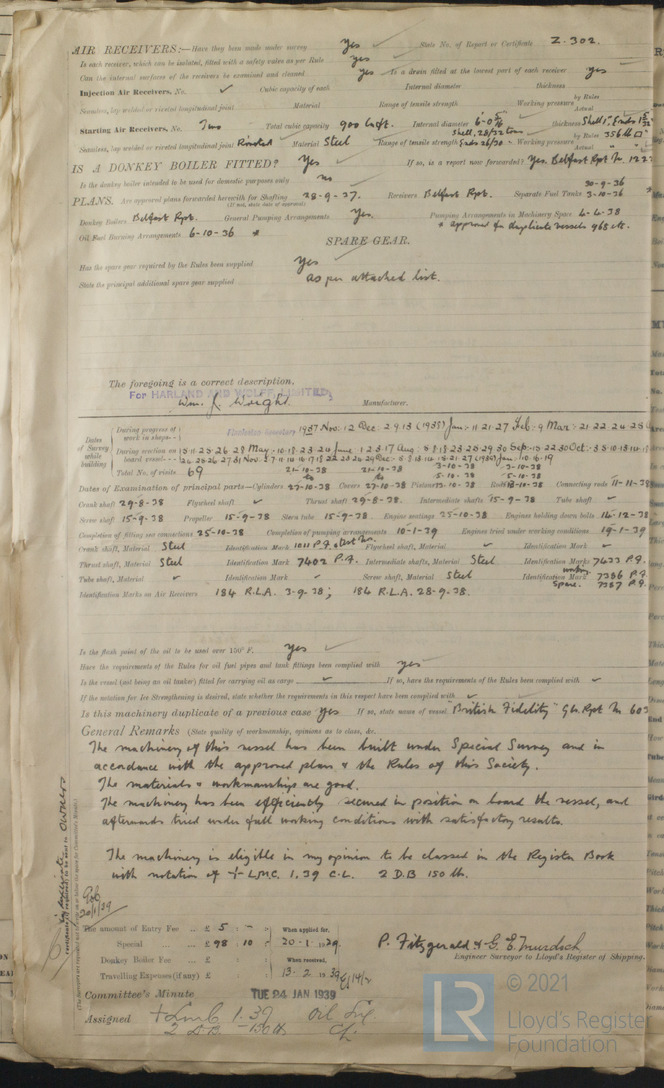 AIR RECEIVERS:—Have they been made under survey Yes ✓ State No. of Report or Certificate Z.302.
Is each receiver, which can be isolated, fitted with a safety valve as per Rule yes ✓
Can the internal surfaces of the receivers be examined and cleaned yes ✓ Is a drain fitted at the lowest part of each receiver yes ✓
Injection Air Receivers, No. ✓ Cubic capacity of each Internal diameter thickness
Seamless, lap welded or riveted longitudinal joint Material Range of tensile strength Working pressure by Rules Actual
Starting Air Receivers, No. Two Total cubic capacity 900 Cu.ft. Internal diameter thickness
Seamless, lap welded or riveted longitudinal joint Riveted Material Steel Range of tensile strength Shell. 28/32 tons Ends 26/30 Working pressure by Rules 356 lb Actual
IS A DONKEY BOILER FITTED? Yes ✓ If so, is a report now forwarded? Yes. Belfast Rpt No.
Is the donkey boiler intended to be used for domestic purposes only no
PLANS. Are approved plans forwarded herewith for Shafting 28-9-37. Receivers Belfast Rpt. Separate Fuel Tanks 30-9-36 3-10-36
(If not, state date of approval)
Donkey Boilers Belfast Rpt. General Pumping Arrangements Yes. Pumping Arrangements in Machinery Space 4-4-38
Oil Fuel Burning Arrangements 6-10-36 * * approved for duplicate vessels 968 etc.
SPARE GEAR.
Has the spare gear required by the Rules been supplied Yes ✓
State the principal additional spare gear supplied as per attached list.
The foregoing is a correct description,
For HARLAND AND WOLFF, LIMITED,
Wm. J. Wright Manufacturer.
Dates of Survey while building
During progress of work in shops - - 1937 Nov: 12 Dec: 2 9 13 (1938) Jan: 11 21 27 Feb: 9 Mar: 21 22 24 25
During erection on board vessel - - -
Total No. of visits 69
Dates of Examination of principal parts—Cylinders 21-10-38 to 27-10-38 Covers 21-10-38 to 27-10-38 Pistons 3-10-38 5-10-38 Rods 3-10-38 5-10-38 Connecting rods 11-11-38
Crank shaft 29-8-38 Flywheel shaft ✓ Thrust shaft 29-8-38. Intermediate shafts 15-9-38 Tube shaft ✓
Screw shaft 15-9-38 Propeller 15-9-38 Stern tube 15-9-38. Engine seatings 25-10-38 Engines holding down bolts 14-12-38
Completion of fitting sea connections 25-10-38 Completion of pumping arrangements 10-1-39 Engines tried under working conditions 19-1-39
Crank shaft, Material Steel Identification Mark 1011 P.F. Flywheel shaft, Material ✓ Identification Mark ✓
Thrust shaft, Material Steel Identification Mark 7402 P.F. Intermediate shafts, Material Steel Identification Marks 7433 P.F.
Tube shaft, Material ✓ Identification Mark ✓ Screw shaft, Material Steel Identification Mark working 7386 P.F.
Spare. 7387 P.F.
Identification Marks on Air Receivers 184 R.L.A. 3-9-38; 184 R.L.A. 28-9-38.
Is the flash point of the oil to be used over 150° F. Yes ✓
Have the requirements of the Rules for oil fuel pipes and tank fittings been complied with yes ✓
Is the vessel (not being an oil tanker) fitted for carrying oil as cargo ✓ If so, have the requirements of the Rules been complied with ✓
If the notation for Ice Strengthening is desired, state whether the requirements in this respect have been complied with ✓
Is this machinery duplicate of a previous case Yes If so, state name of vessel "British Fidelity" Gls. Rpt No 603
General Remarks (State quality of workmanship, opinions as to class, &c.
The machinery of this vessel has been built under Special Survey and in
accordance with the approved plans & the Rules of this Society.
The materials & workmanship are good.
The machinery has been efficiently secured in position on board the vessel, and
afterwards tried under full working conditions with satisfactory results.
The machinery is eligible in my opinion to be classed in the Register Book
with notation of + L.M.C. 1.39 C.L. 2 D.B 150 lb.
20/1/39
The amount of Entry Fee .. £ 5 : - : When applied for,
Special ... ... £ 98 : 10 : 20-1-1939.
Donkey Boiler Fee ... £ : : When received,
Travelling Expenses (if any) £ : : 13-2-1939
P. Fitzgerald & G. E. Murdoch
Engineer Surveyor to Lloyd's Register of Shipping.
Committee's Minute TUE 24 JAN 1939
Assigned + Lmc 1.39 Oil Eng
2 D.B. - 150 lb CL
© 2021
LR
Lloyd's Register
Foundation